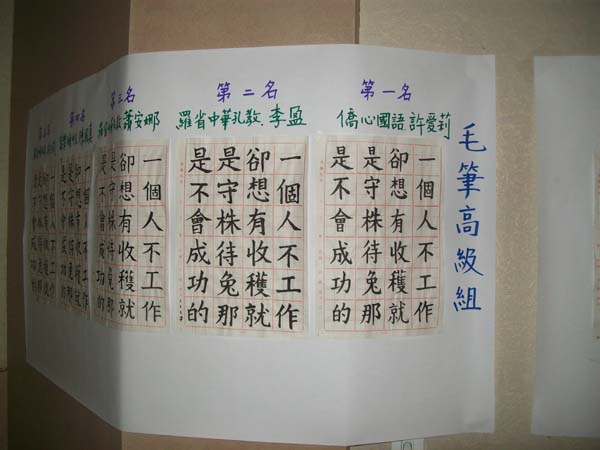 毛筆高級組
第一名
僑心國語、許愛莉
一個人不工作
卻想有收穫就
是守株待兔那
是不會成功的
第二名
羅省中華孔教、李盈
一個人不工作
卻想有收穫就
是守株待兔那
是不會成功的
第三名
蕭安娜
一個人不工作
卻想有收穫就
是守株待兔那
是不會成功的
第四名